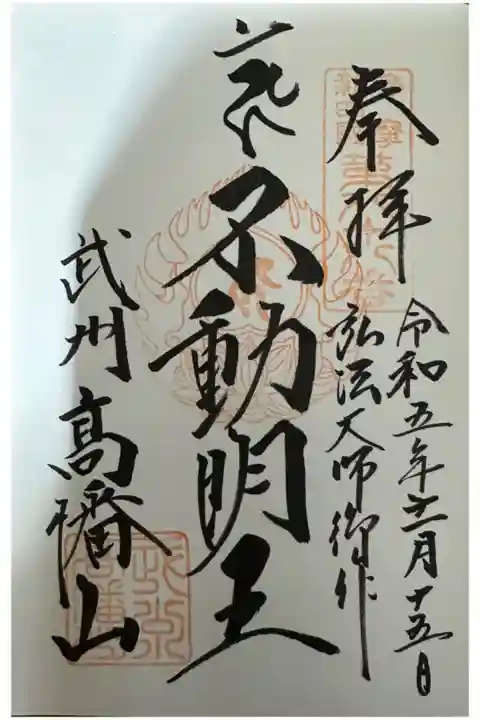 奉拝
令和五年十一月十五日
弘法大師御作
不動明王
武州 高幡山